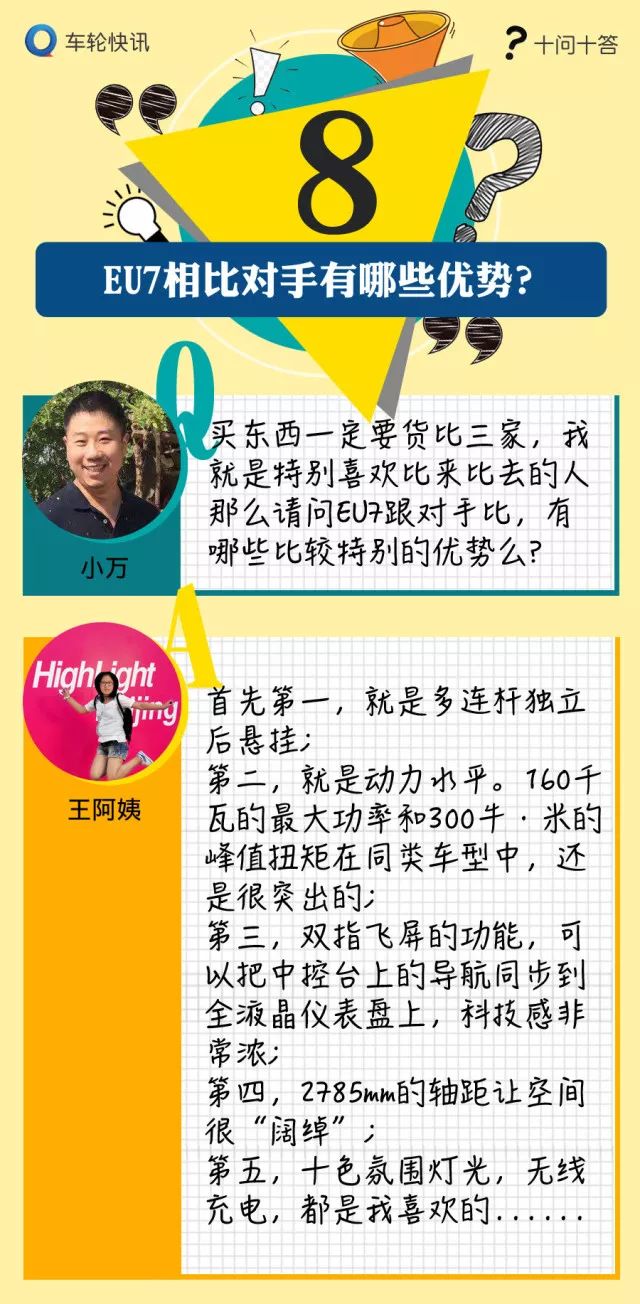 车轮快讯
十问十答
8
EU7相比对手有哪些优势?
Q
买东西一定要货比三家，我
就是特别喜欢比来比去的人
那么请问EU7跟对手比，有
哪些比较特别的优势么?
小万
A
HighLight
jing
王阿姨
首先第一，就是多连杆独立
后悬挂;
第二，就是动力水平。160千
瓦的最大功率和300牛·米的
峰值扭矩在同类车型中，还
是很突出的;
第三，双指飞屏的功能，可
以把中控台上的导航同步到
全液晶仪表盘上，科技感非
常浓;
第四，2785mm的轴距让空间
很“阔绰”;
第五，十色氛围灯光，无线
充电，都是我喜欢的......